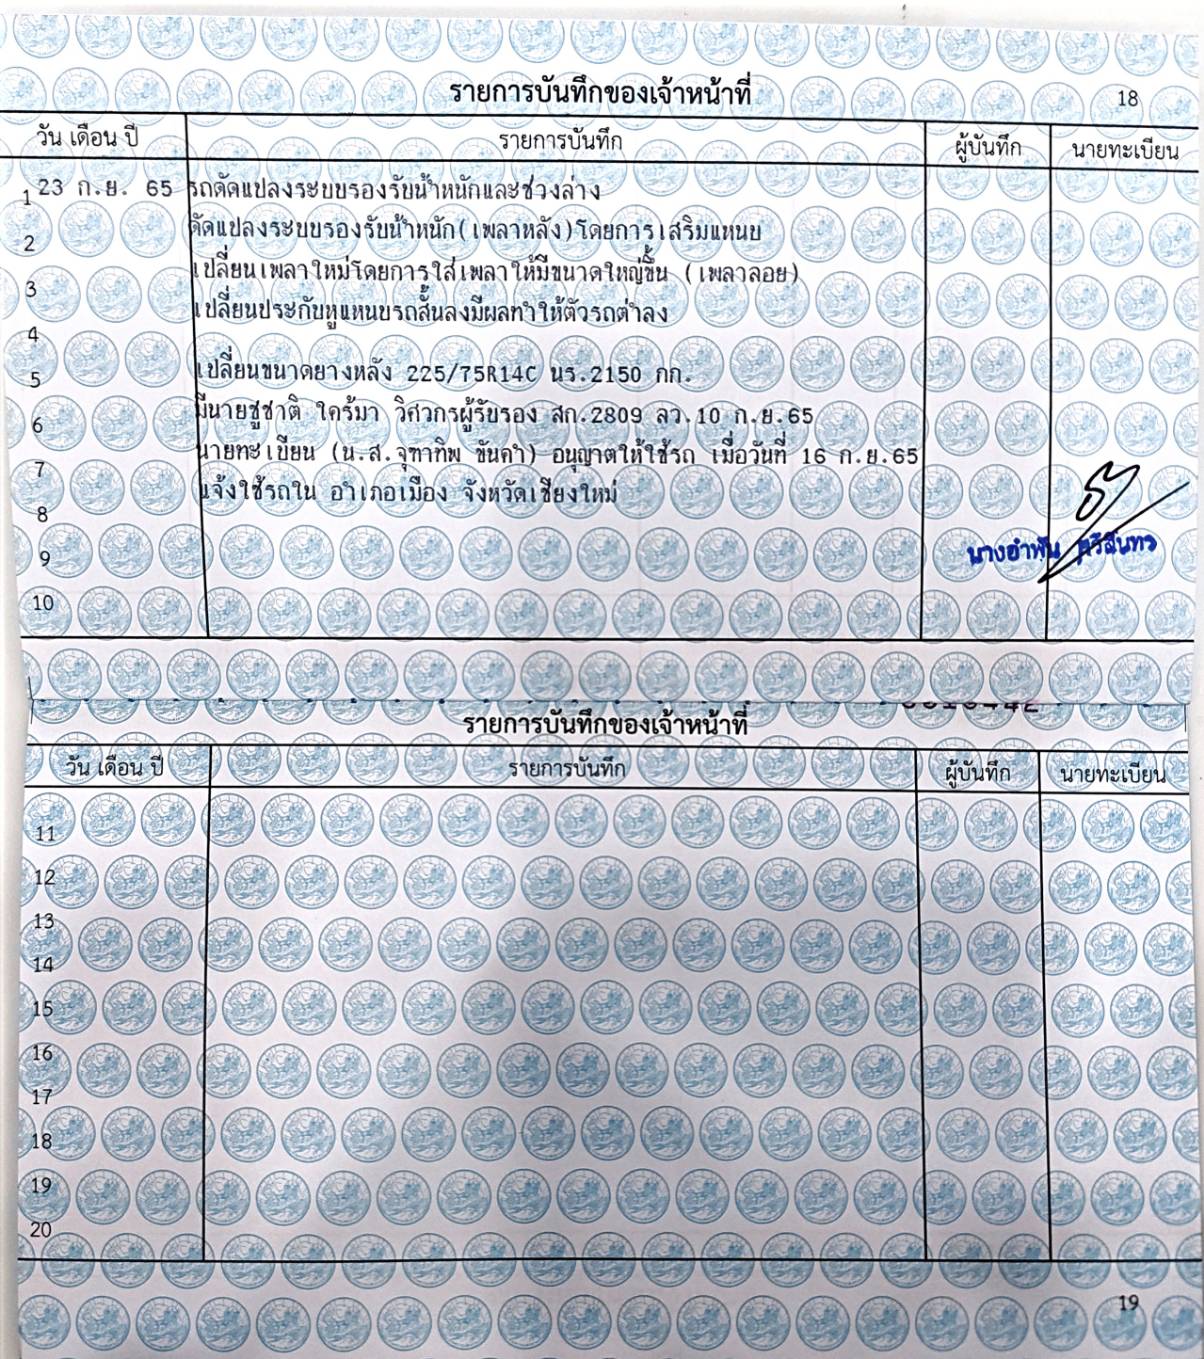 รายการบันทึกของเจ้าหน้าที่ 18
วัน เดือน ปี รายการบันทึก ผู้บันทึก นายทะเบียน
1 23 ก.ย. 65 รถดัดแปลงระบบรองรับน้ำหนักและช่วงล่าง
2 ดัดแปลงระบบรองรับน้ำหนัก(เพลาหลัง)โดยการเสริมแหนบ
เปลี่ยนเพลาใหม่โดยการใส่เพลาให้มีขนาดใหญ่ขึ้น (เพลาลอย)
3 เปลี่ยนประกับหูแหนบรถสั้นลงมีผลทำให้ตัวรถต่ำลง
4
5 เปลี่ยนขนาดยางหลัง 225/75R14C นร.2150 กก.
6 มีนายชูชาติ ใคร้มา วิศวกรผู้รับรอง สก.2809 ลว.10 ก.ย.65
7 นายทะเบียน (น.ส.จุฑาทิพ ขันคำ) อนุญาตให้ใช้รถ เมื่อวันที่ 16 ก.ย.65
8 แจ้งใช้รถใน อำเภอเมือง จังหวัดเชียงใหม่
9 นางอำพัน
10
รายการบันทึกของเจ้าหน้าที่
วัน เดือน ปี รายการบันทึก ผู้บันทึก นายทะเบียน
11
12
13
14
15
16
17
18
19
20
19